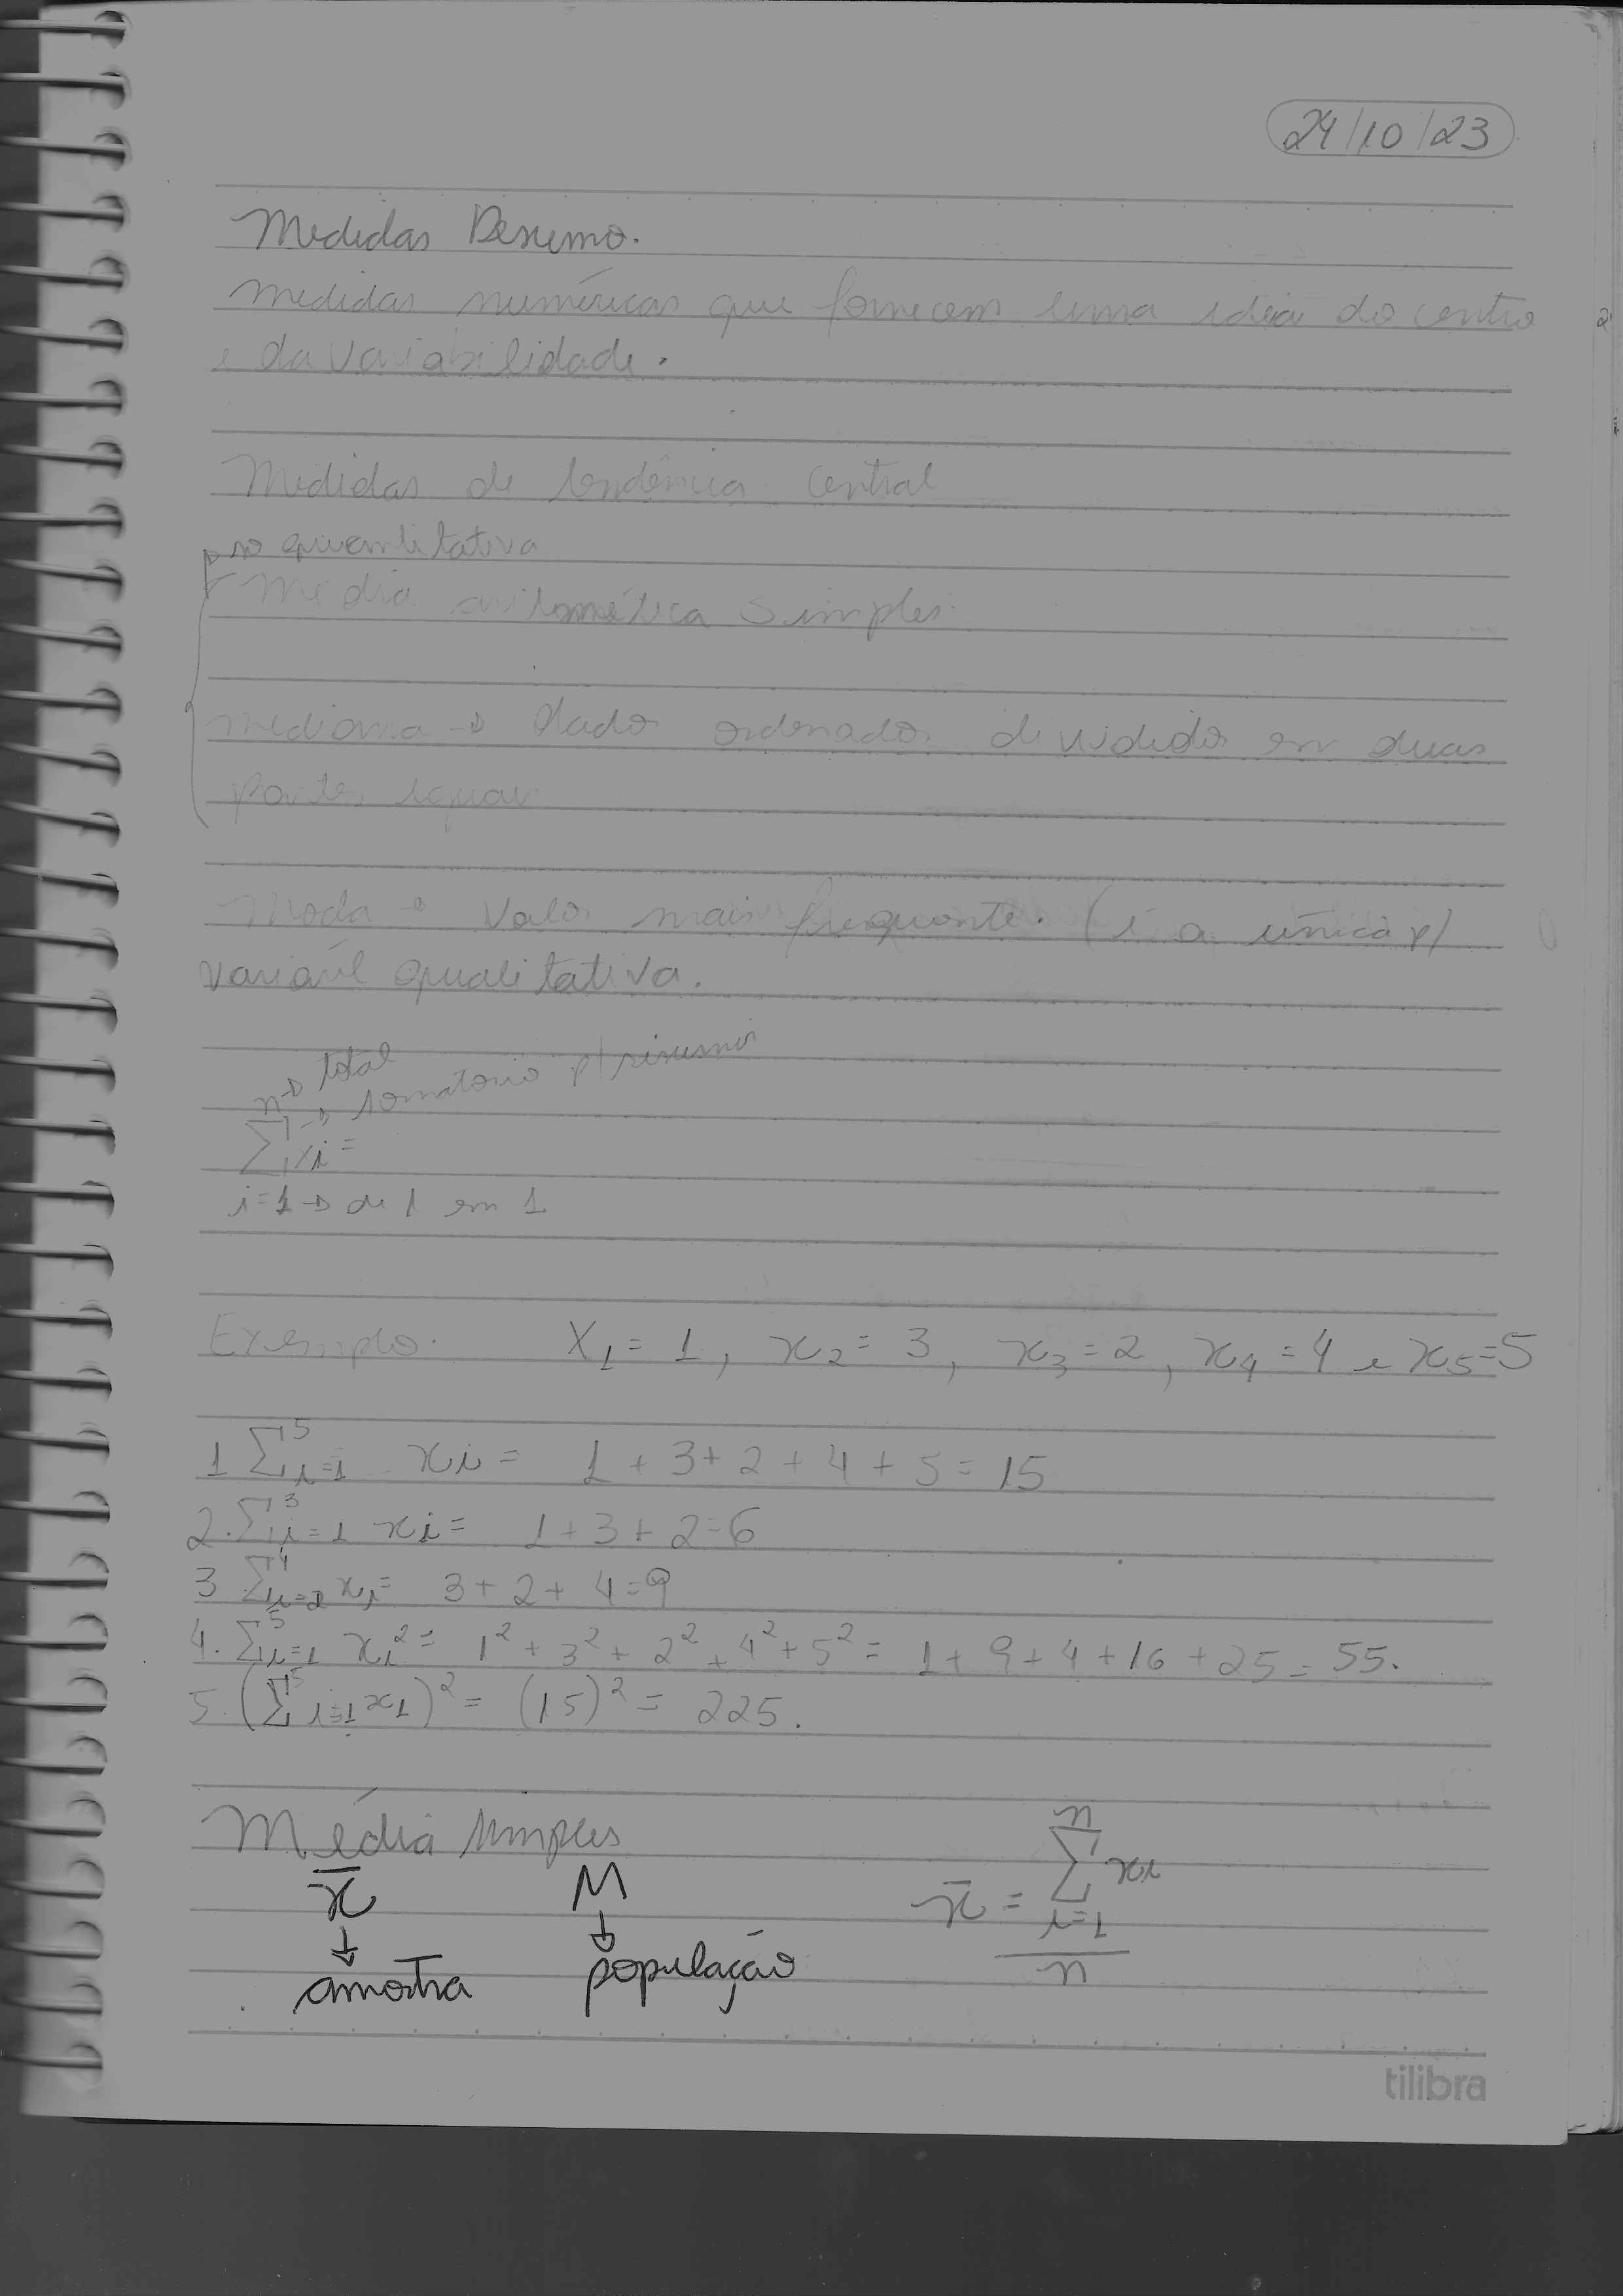 24/10/23
Medidas Resumo.
medidas numéricas que fornecem uma ideia do centro
e da variabilidade.
Medidas de tendência central
so quantitativa
Média aritmética simples
mediana → dados ordenados divididos em duas
partes iguais
Moda → Valor mais frequente. (é a única p/
variável qualitativa.
n → total
→ somatório p/ resumir
∑ xi =
i=1 → de 1 em 1
Exemplo. X1 = 1, x2 = 3, x3 = 2, x4 = 4 e x5 = 5
1 ∑⁵i=1 xi = 1 + 3 + 2 + 4 + 5 = 15
2. ∑³i=1 xi = 1 + 3 + 2 = 6
3 ∑⁴i=2 xi = 3 + 2 + 4 = 9
4. ∑⁵i=1 xi² = 1² + 3² + 2² + 4² + 5² = 1 + 9 + 4 + 16 + 25 = 55.
5. (∑⁵i=1 x1)² = (15)² = 225.
Média simples
x̄ M x̄ = ∑ⁿi=1 xi / n
↓ ↓
amostra população
tilibra